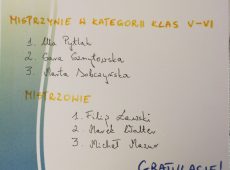 MISTRZYNIE W KATEGORII KLAS V-VI
1. Ula Pytlak
2. Sara
3. Marta Sobczyńska
MISTRZOWIE
1. Filip Zawski
2. Marek Walter
3. Michał Mazur
GRATULACJE!